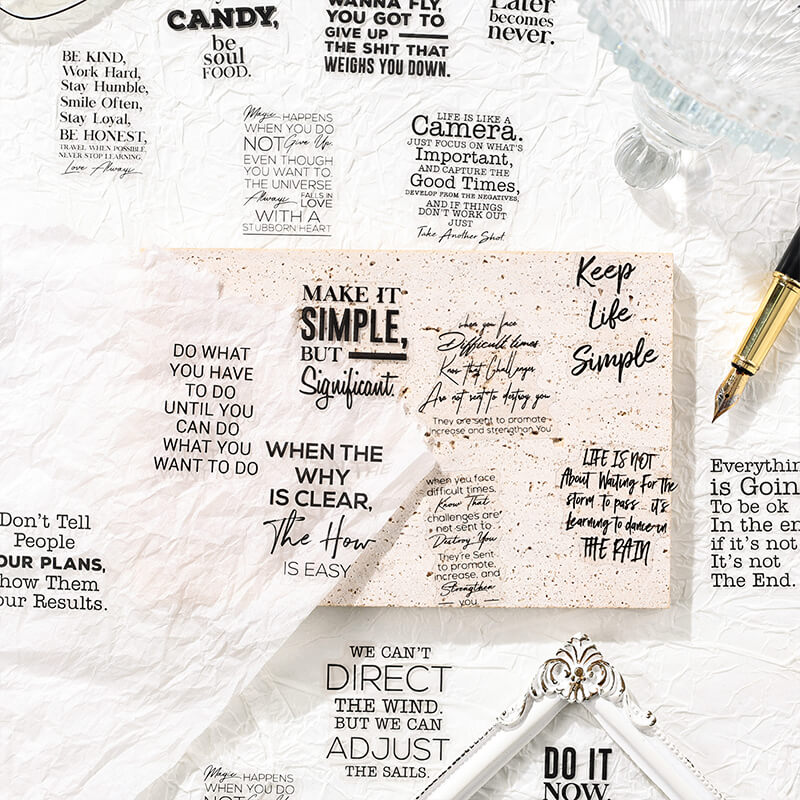 CANDY,
be
soul
FOOD.
WANNA FLY,
YOU GOT TO
GIVE UP
THE SHIT THAT
WEIGHS YOU DOWN.
Later
becomes
never.
BE KIND,
Work Hard,
Stay Humble,
Smile Often,
Stay Loyal,
BE HONEST,
TRAVEL WHEN POSSIBLE,
NEVER STOP LEARNING,
Love Always
Magic HAPPENS
WHEN YOU DO
NOT Give Up,
EVEN THOUGH
YOU WANT TO.
THE UNIVERSE
Always FALLS IN
LOVE
WITH A
STUBBORN HEART
LIFE IS LIKE A
Camera.
JUST FOCUS ON WHAT'S
Important,
AND CAPTURE THE
Good Times,
DEVELOP FROM THE NEGATIVES,
AND IF THINGS
DON'T WORK OUT
JUST
Take Another Shot.
MAKE IT
SIMPLE,
BUT
Significant.
when you face
Difficult times
Know that Challenges
Are not sent to destroy you
They are sent to promote
increase and strengthan You
Keep
Life
Simple
DO WHAT
YOU HAVE
TO DO
UNTIL YOU
CAN DO
WHAT YOU
WANT TO DO
WHEN THE
WHY
IS CLEAR,
The How
IS EASY
when you face
difficult times.
Know That
challenges are
not sent to
Destroy You
They're Sent
to promote,
increase, and
Strengthen
you
LIFE IS NOT
About Waiting For the
storm to pass... it's
learning to dance in
THE RAIN
Don't Tell
People
OUR PLANS,
how Them
our Results.
Everythin
is Goin
To be ok
In the en
if it's not
It's not
The End.
WE CAN'T
DIRECT
THE WIND.
BUT WE CAN
ADJUST
THE SAILS.
Magic HAPPENS
WHEN YOU DO
DO IT
NOW.